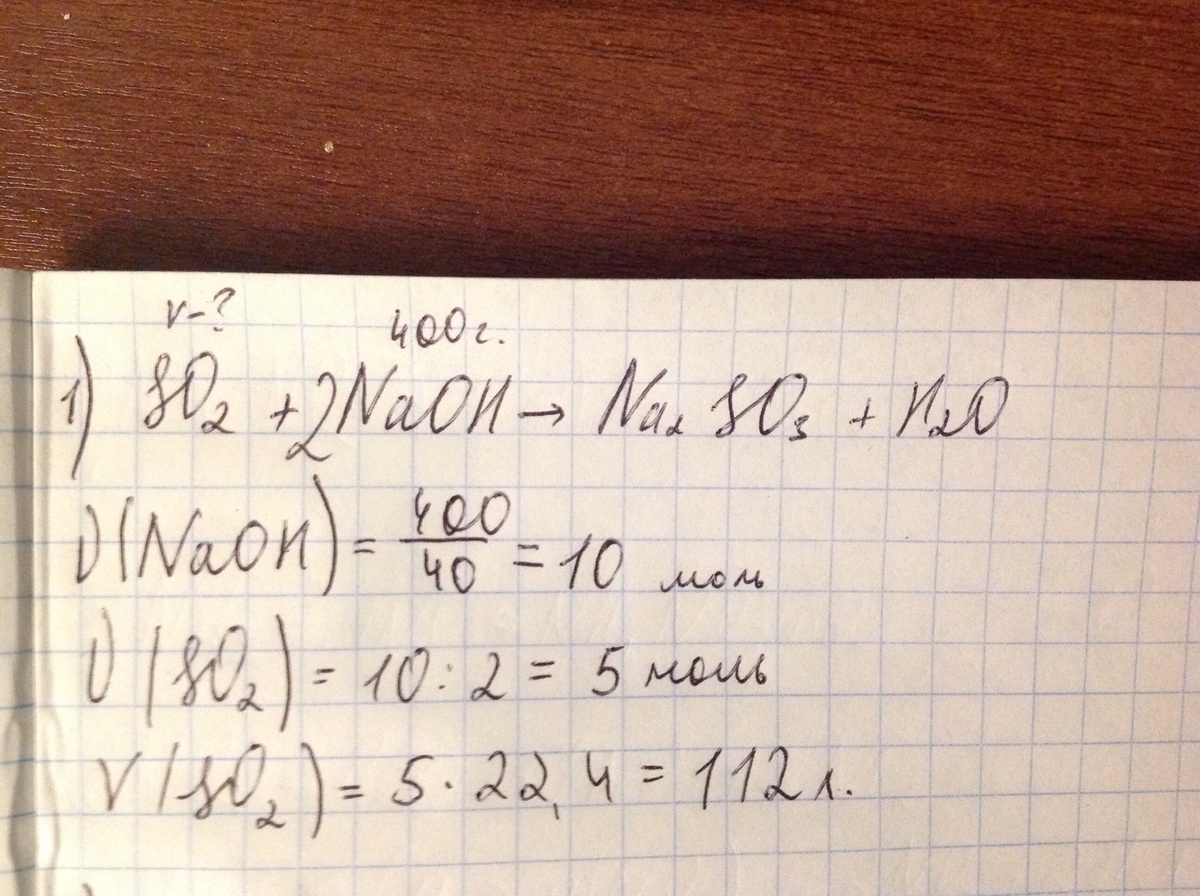 V-?
400г.
1) SO₂ + 2NaOH → Na₂SO₃ + H₂O
ν(NaOH) = 400/40 = 10 моль
ν(SO₂) = 10 : 2 = 5 моль
V(SO₂) = 5 · 22,4 = 112 л.